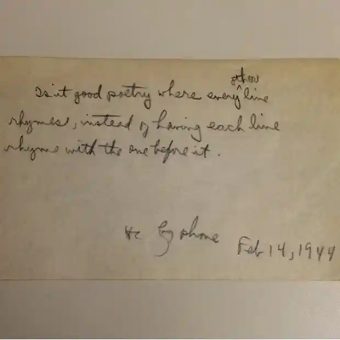 other
Is it good poetry where every line
rhymes, instead of having each line
rhyme with the one before it.
by phone Feb 14, 1944